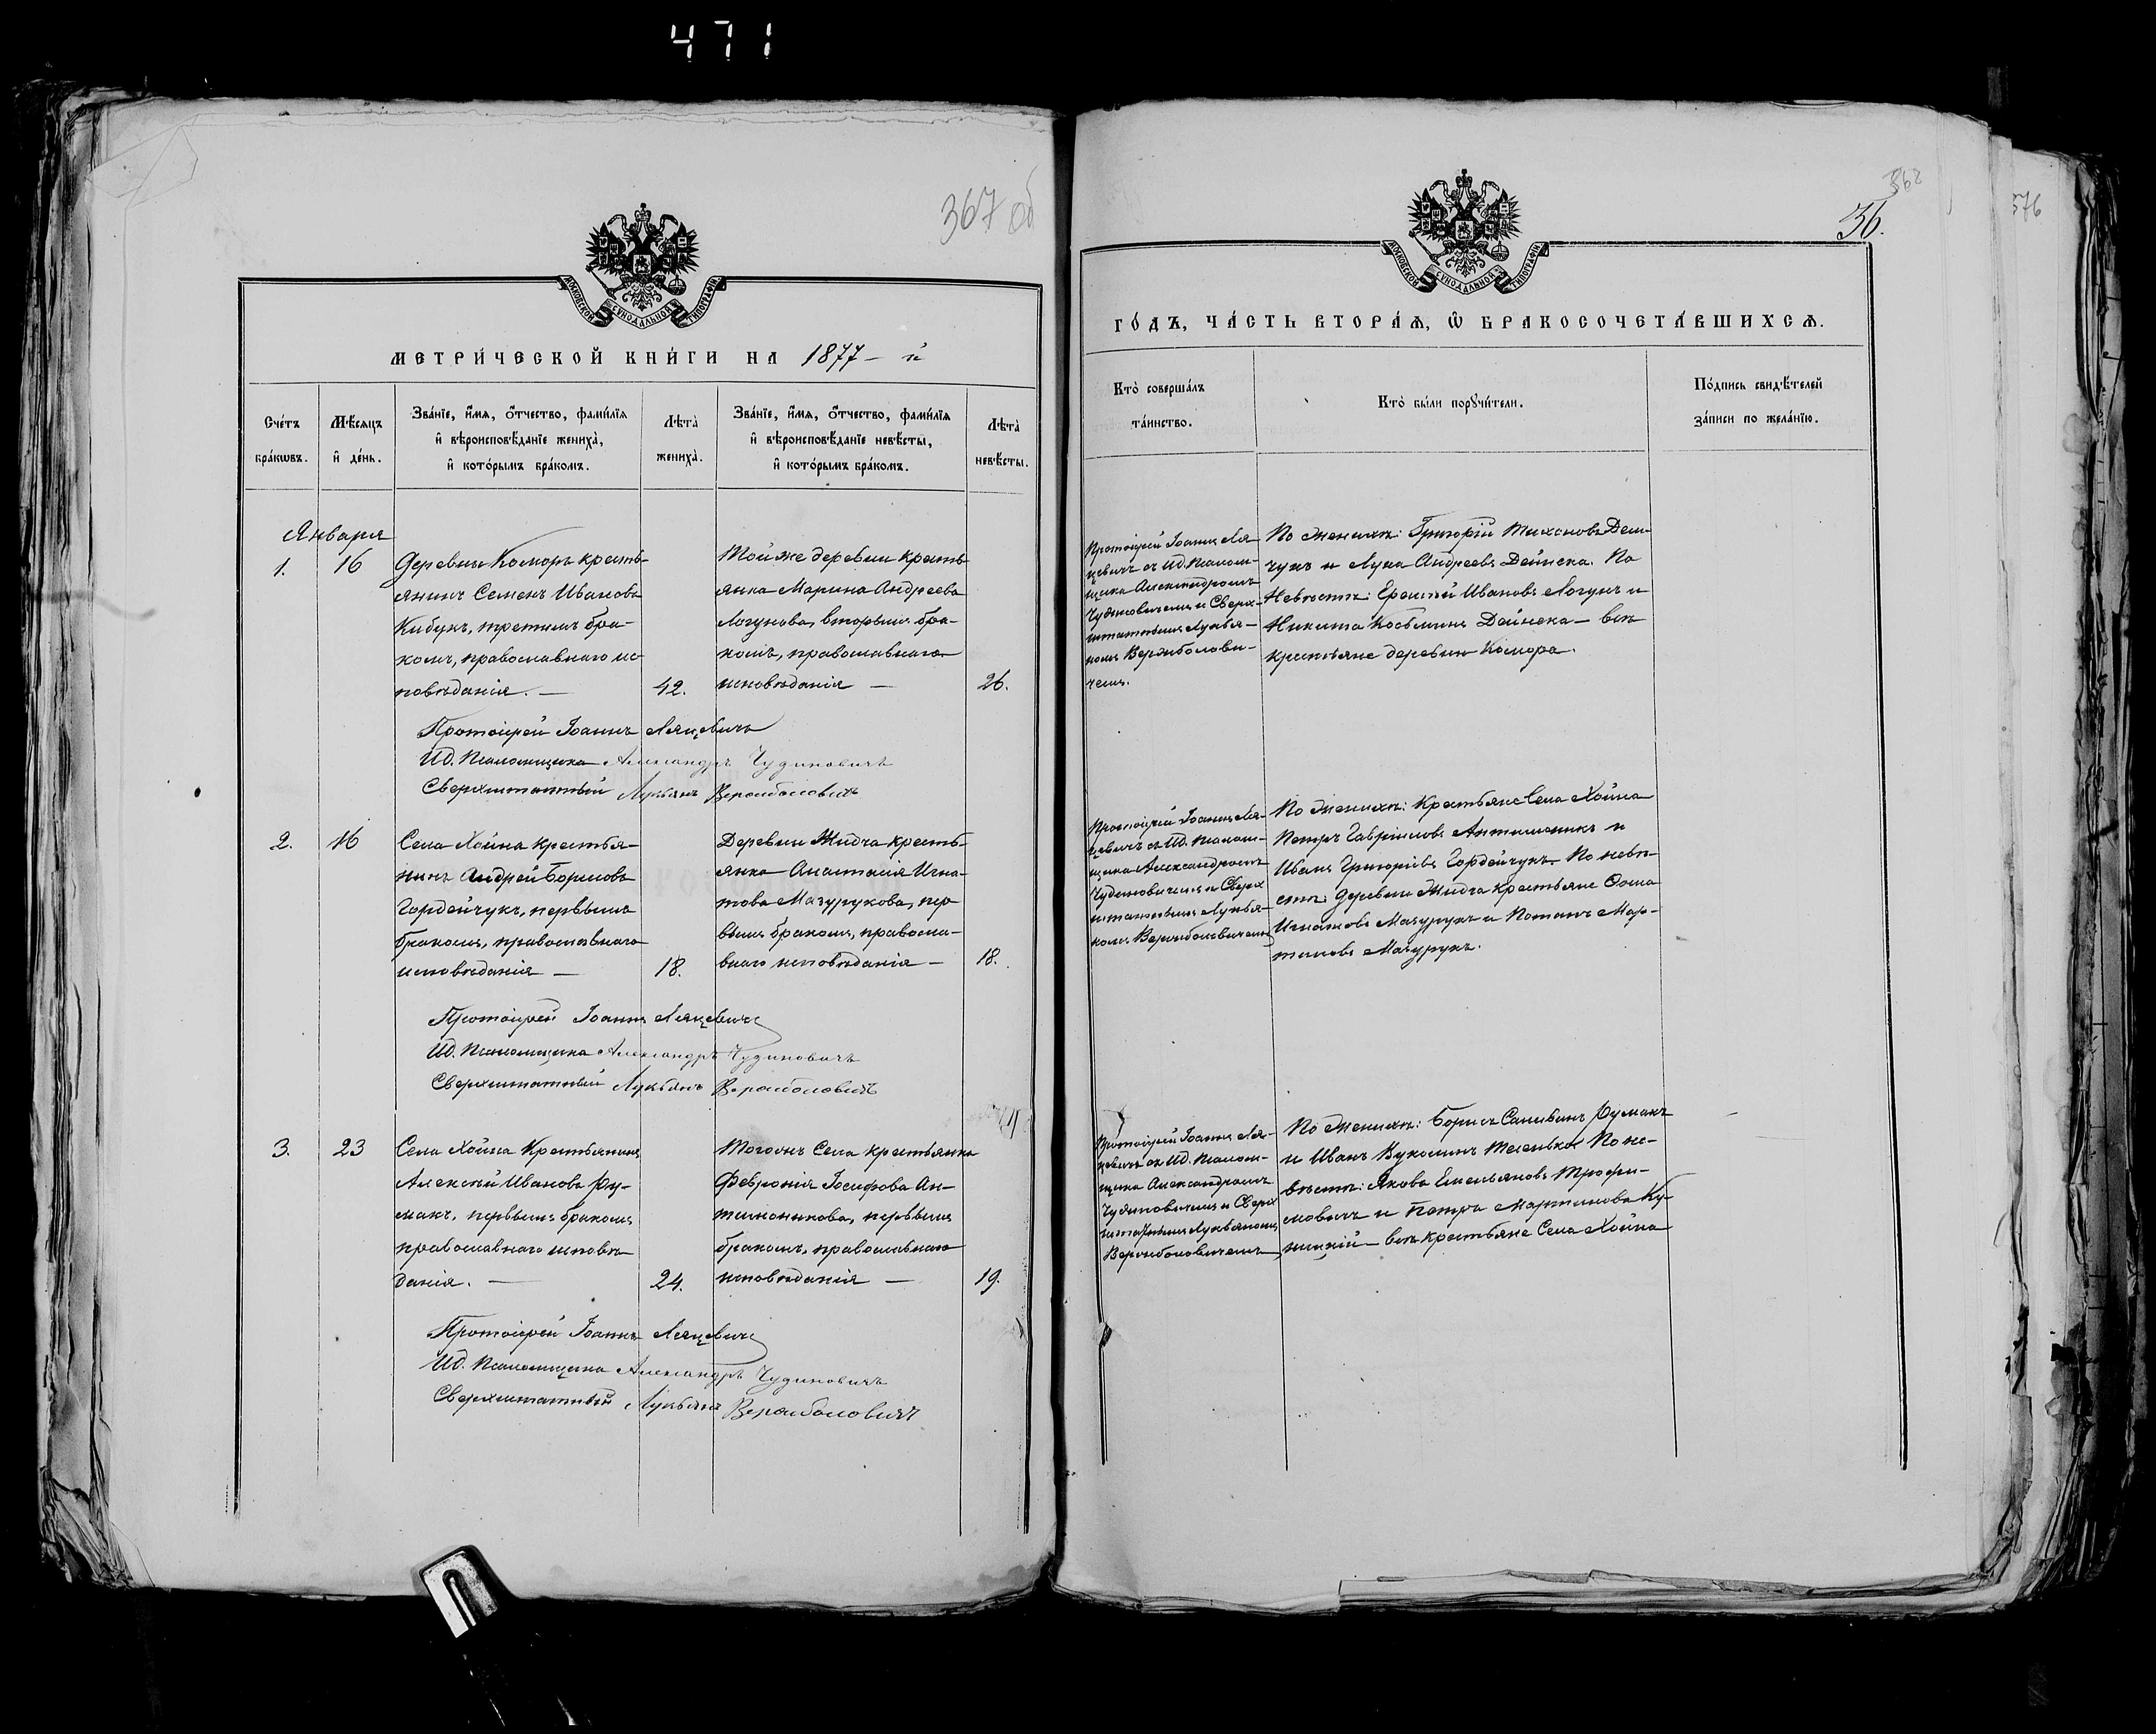 471
367 об
МЕТРИ́ЧЕСКОЙ КНИ́ГИ НА 1877 - й
Сче́тъ бра́кѡвъ.
Мѣ́сяцъ и҆ де́нь.
Зва́нїе, и҆́мѧ, ѻ҆́тчество, фами́лїѧ
и҆ вѣроисповѣ́данїе жениха̀,
и҆ кото́рымъ бра́комъ.
Лѣ́та жениха̀.
Зва́нїе, и҆́мѧ, ѻ҆́тчество, фами́лїѧ
и҆ вѣроисповѣ́данїе невѣ́сты,
и҆ кото́рымъ бра́комъ.
Лѣ́та невѣ́сты.
Января
1.
16
Деревни Коморъ кресть-
янинъ Семенъ Ивановъ
Кибукъ, третимъ бра-
комъ, православнаго ис-
повѣданія. —
42.
Той же деревни кресть-
янка Марина Андреева
Логунова, вторымъ бра-
комъ, православнаго
исповѣданія —
26.
Протоіерей Іоаннъ Ляцевичъ
И.д. Псаломщика Александръ Чудиновичъ
Сверхштатный Лукьянъ Вержболовичъ
2.
16
Села Хойна крестья-
нинъ Андрей Борисовъ
Гордейчукъ, первымъ
бракомъ, православнаго
исповѣданія —
18.
Деревни Жидча кресть-
янка Анастасія Игна-
това Мазурукова, пер-
вымъ бракомъ, правосла-
внаго исповѣданія —
18.
Протоіерей Іоаннъ Ляцевичъ
И.д. Псаломщика Александръ Чудиновичъ
Сверхштатный Лукьянъ Вержболовичъ
3.
23
Села Хойна Крестьянинъ
Алексѣй Ивановъ Ру-
макъ, первымъ бракомъ
православнаго исповѣ-
данія. —
24.
Тогожъ Села крестьянка
Февронія Іосифова Ан-
тишоникова, первымъ
бракомъ, православнаго
исповѣданія —
19.
Протоіерей Іоаннъ Ляцевичъ
И.д. Псаломщика Александръ Чудиновичъ
Сверхштатный Лукьянъ Вержболовичъ
36.
МОСКОВСКОЙ СѴНОДАЛЬНОЙ ТИПОГРАФІИ
ГО́ДЪ, ЧА́СТЬ ВТОРА́Ѧ, Ѽ БРАКОСОЧЕТА́ВШИХСѦ.
Кто̀ соверша́лъ та́инство.
Кто̀ бы́ли порꙋчи́тели.
По́дпись свидѣ́телей
за́писи по жела́нїю.
Протоіерей Іоаннъ Ля-
цевичъ съ И.д. Псалом-
щика Александромъ
Чудиновичемъ и Сверх-
штатнымъ Лукья-
номъ Вержболови-
чемъ.
По Женихѣ: Григорій Тихоновъ Дем-
чукъ и Лука Андреевъ Дейнека. По
Невѣстѣ: Еремѣй Ивановъ Логунъ и
Никита Косьминъ Дейнека — всѣ
крестьяне деревни Комора.
Протоіерей Іоаннъ Ля-
цевичъ съ И.д. Псалом-
щика Александромъ
Чудиновичемъ и Сверх
штатнымъ Лукья-
номъ Вержболовичемъ
По Женихѣ: Крестьяне Села Хойна
Петръ Гавріиловъ Антишоникъ и
Иванъ Григоріевъ Гордейчукъ. По невѣ-
стѣ: Деревни Жидча крестьяне Ѳома
Игнатовъ Мазурукъ и Потапъ Мар-
тиновъ Мазурукъ.
Протоіерей Іоаннъ Ля-
цевичъ съ И.д. Псалом-
щика Александромъ
Чудиновичемъ и Сверх
штатнымъ Лукьяномъ
Вержболовичемъ
По Женихѣ: Борисъ Румакъ
и Иванъ По не-
вѣстѣ: Яковъ Емельяновъ Трофи-
мовичъ и Петръ Мартиновъ Ку-
ницкій — всѣ крестьяне Села Хойна